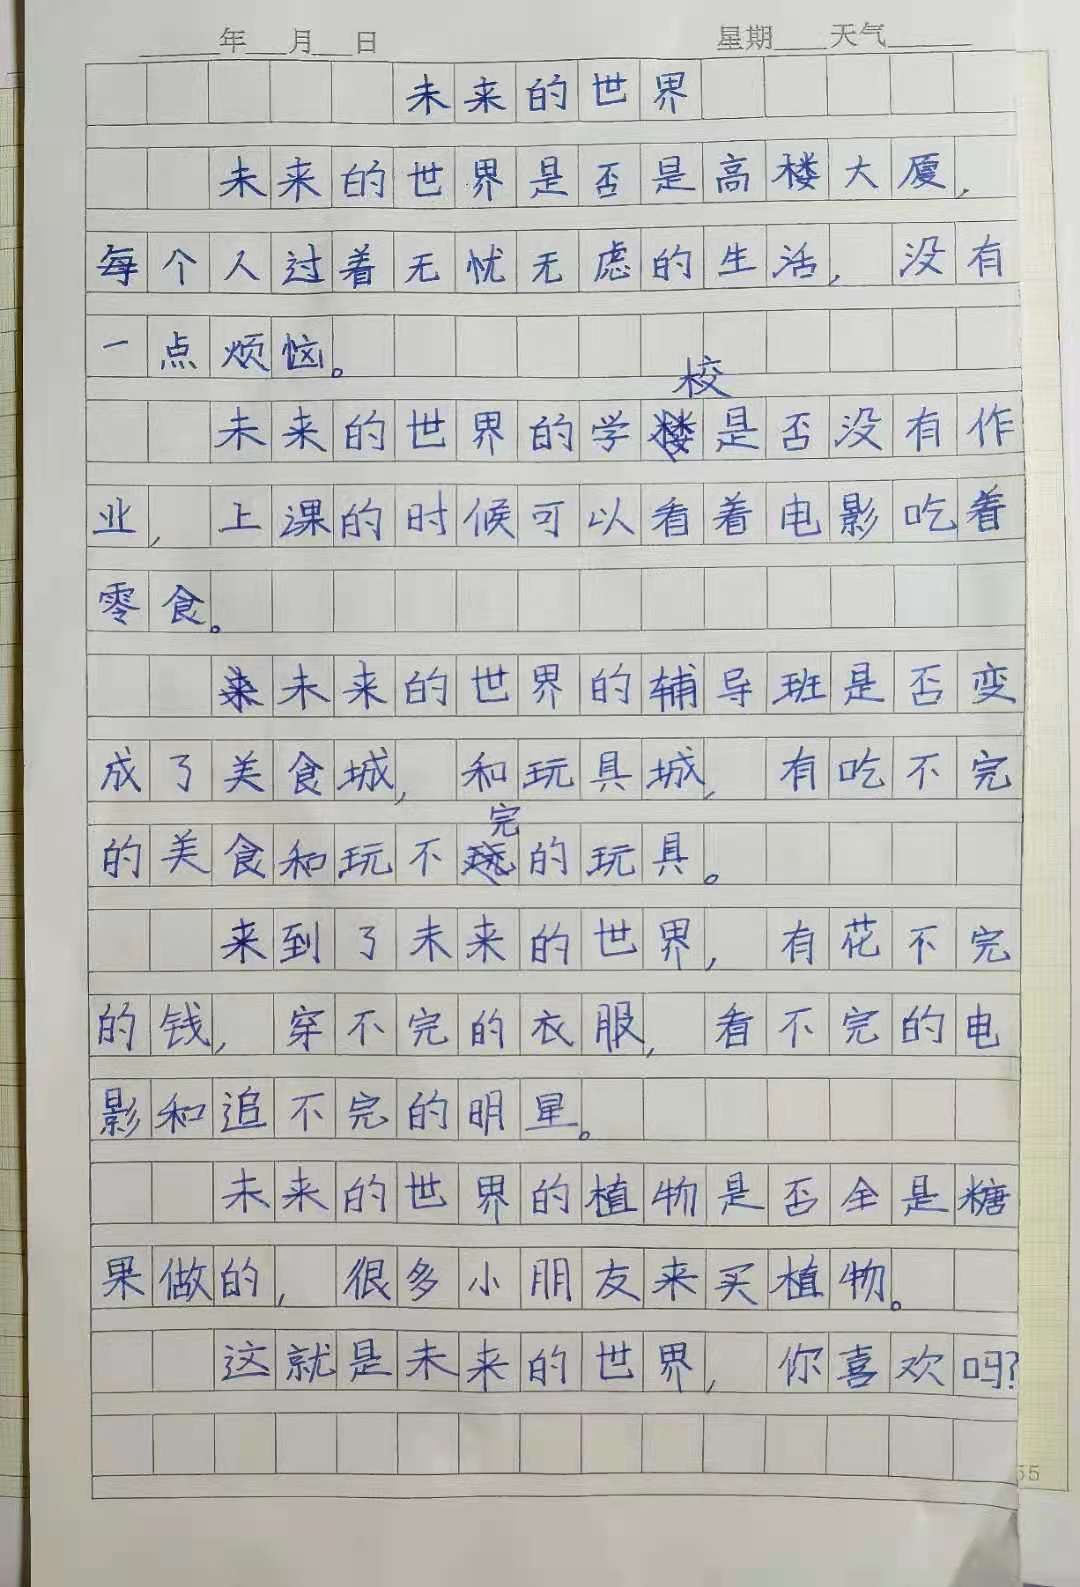 年 月 日 星期 天气
未来的世界
未来的世界是否是高楼大厦,
每个人过着无忧无虑的生活,没有
一点烦恼。
校
未来的世界的学是否没有作
业,上课的时候可以看着电影吃着
零食。
未来的世界的辅导班是否变
成了美食城,和玩具城,有吃不完
完
的美食和玩不的玩具。
来到了未来的世界,有花不完
的钱,穿不完的衣服,看不完的电
影和追不完的明星。
未来的世界的植物是否全是糖
果做的,很多小朋友来买植物。
这就是未来的世界,你喜欢吗?
55